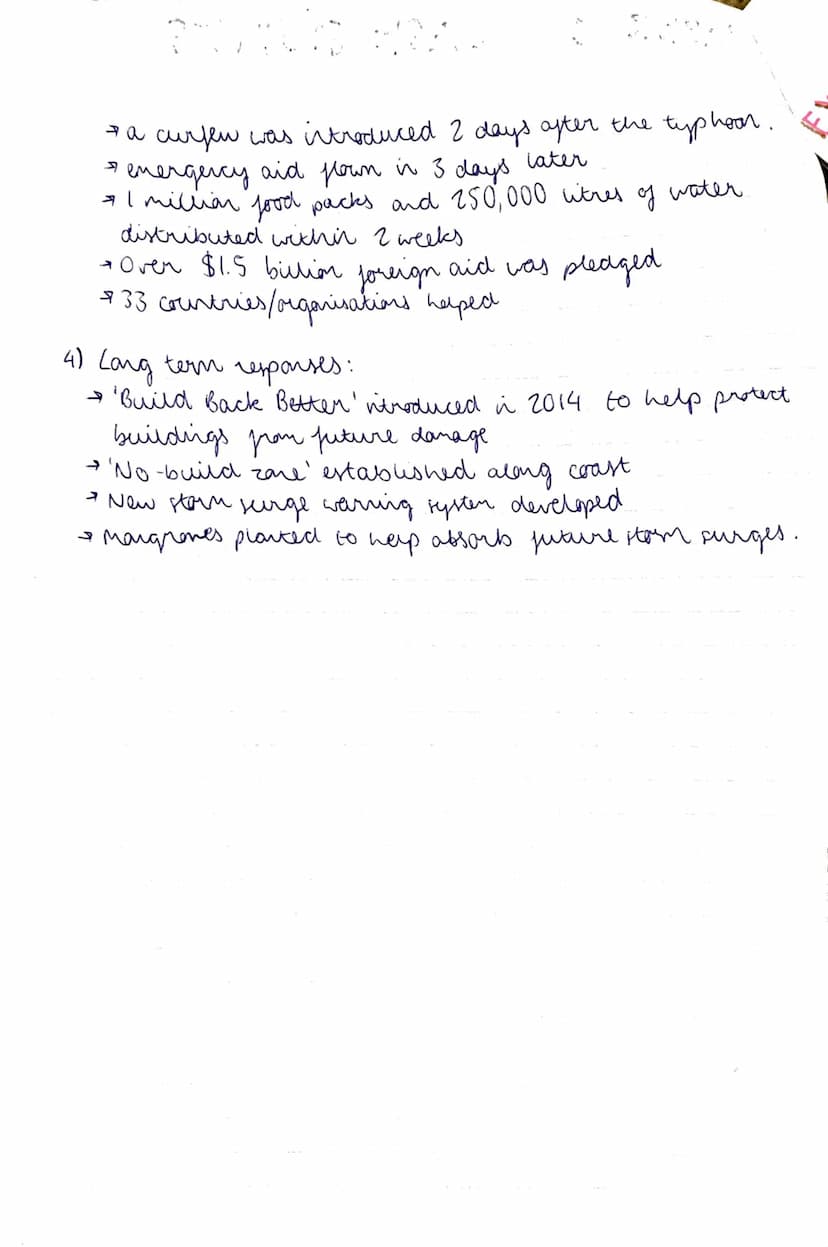 → a curfew was introduced 2 days after the typhoon.
→ emergency aid flown in 3 days later
→ 1 million food packs and 250,000 litres of water
distributed within 2 weeks
→ Over $1.5 billion foreign aid was pledged
→ 33 countries/organisations helped
4) Long term responses:
→ 'Build Back Better' introduced in 2014 to help protect
buildings from future damage
→ 'No-build zone' established along coast
→ New storm surge warning system developed
→ Mangroves planted to help absorb future storm surges.